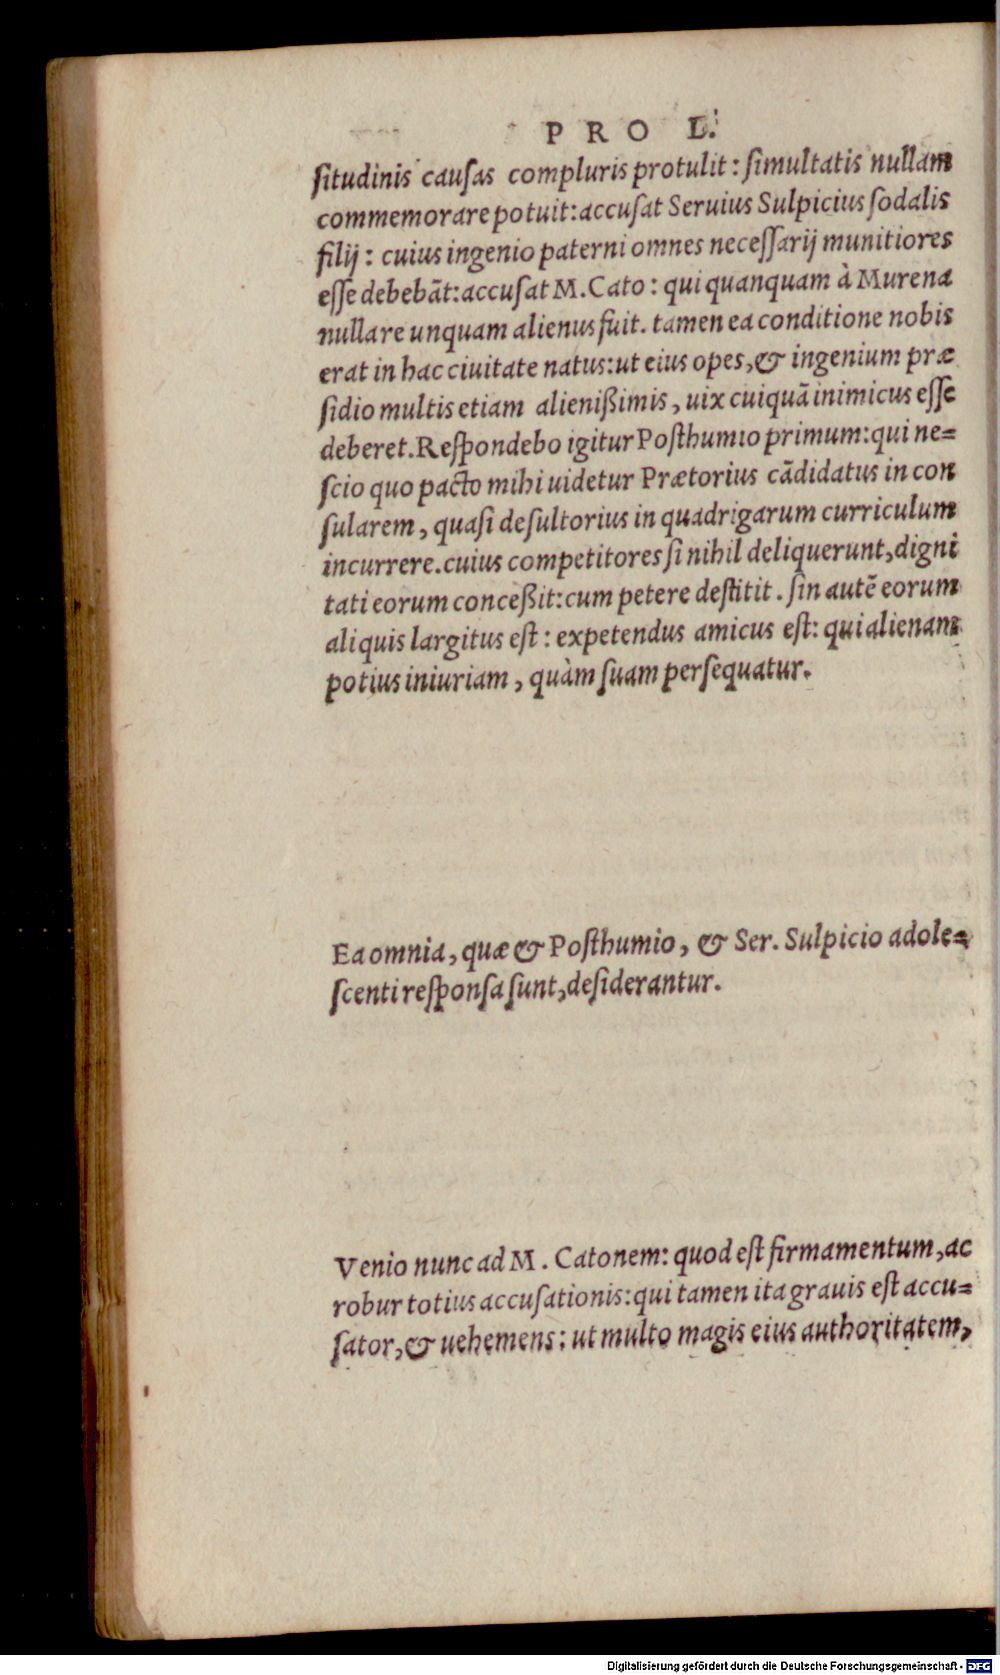 PRO L.
ſitudinis cauſas compluris protulit: ſimultatis nullam
commemorare potuit: accuſat Seruius Sulpicius ſodalis
filij: cuius ingenio paterni omnes neceſſarij munitiores
eſſe debebāt: accuſat M. Cato: qui quanquam à Murena
nulla re unquam alienus fuit. tamen ea conditione nobis
erat in hac ciuitate natus: ut eius opes, & ingenium præ
ſidio multis etiam alienißimis, uix cuiquā inimicus eſſe
deberet. Reſpondebo igitur Poſthumio primum: qui ne=
ſcio quo pacto mihi uidetur Prætorius cādidatus in con
ſularem, quaſi deſultorius in quadrigarum curriculum
incurrere. cuius competitores ſi nihil deliquerunt, digni
tati eorum conceßit: cum petere deſtitit. ſin autē eorum
aliquis largitus eſt: expetendus amicus eſt: qui alienam
potius iniuriam, quàm ſuam perſequatur.
Ea omnia, quæ & Poſthumio, & Ser. Sulpicio adole=
ſcenti reſponſa ſunt, deſiderantur.
Venio nunc ad M. Catonem: quod eſt firmamentum, ac
robur totius accuſationis: qui tamen ita grauis eſt accu=
ſator, & uehemens: ut multo magis eius authoritatem,
Digitalisierung gefördert durch die Deutsche Forschungsgemeinschaft - DFG